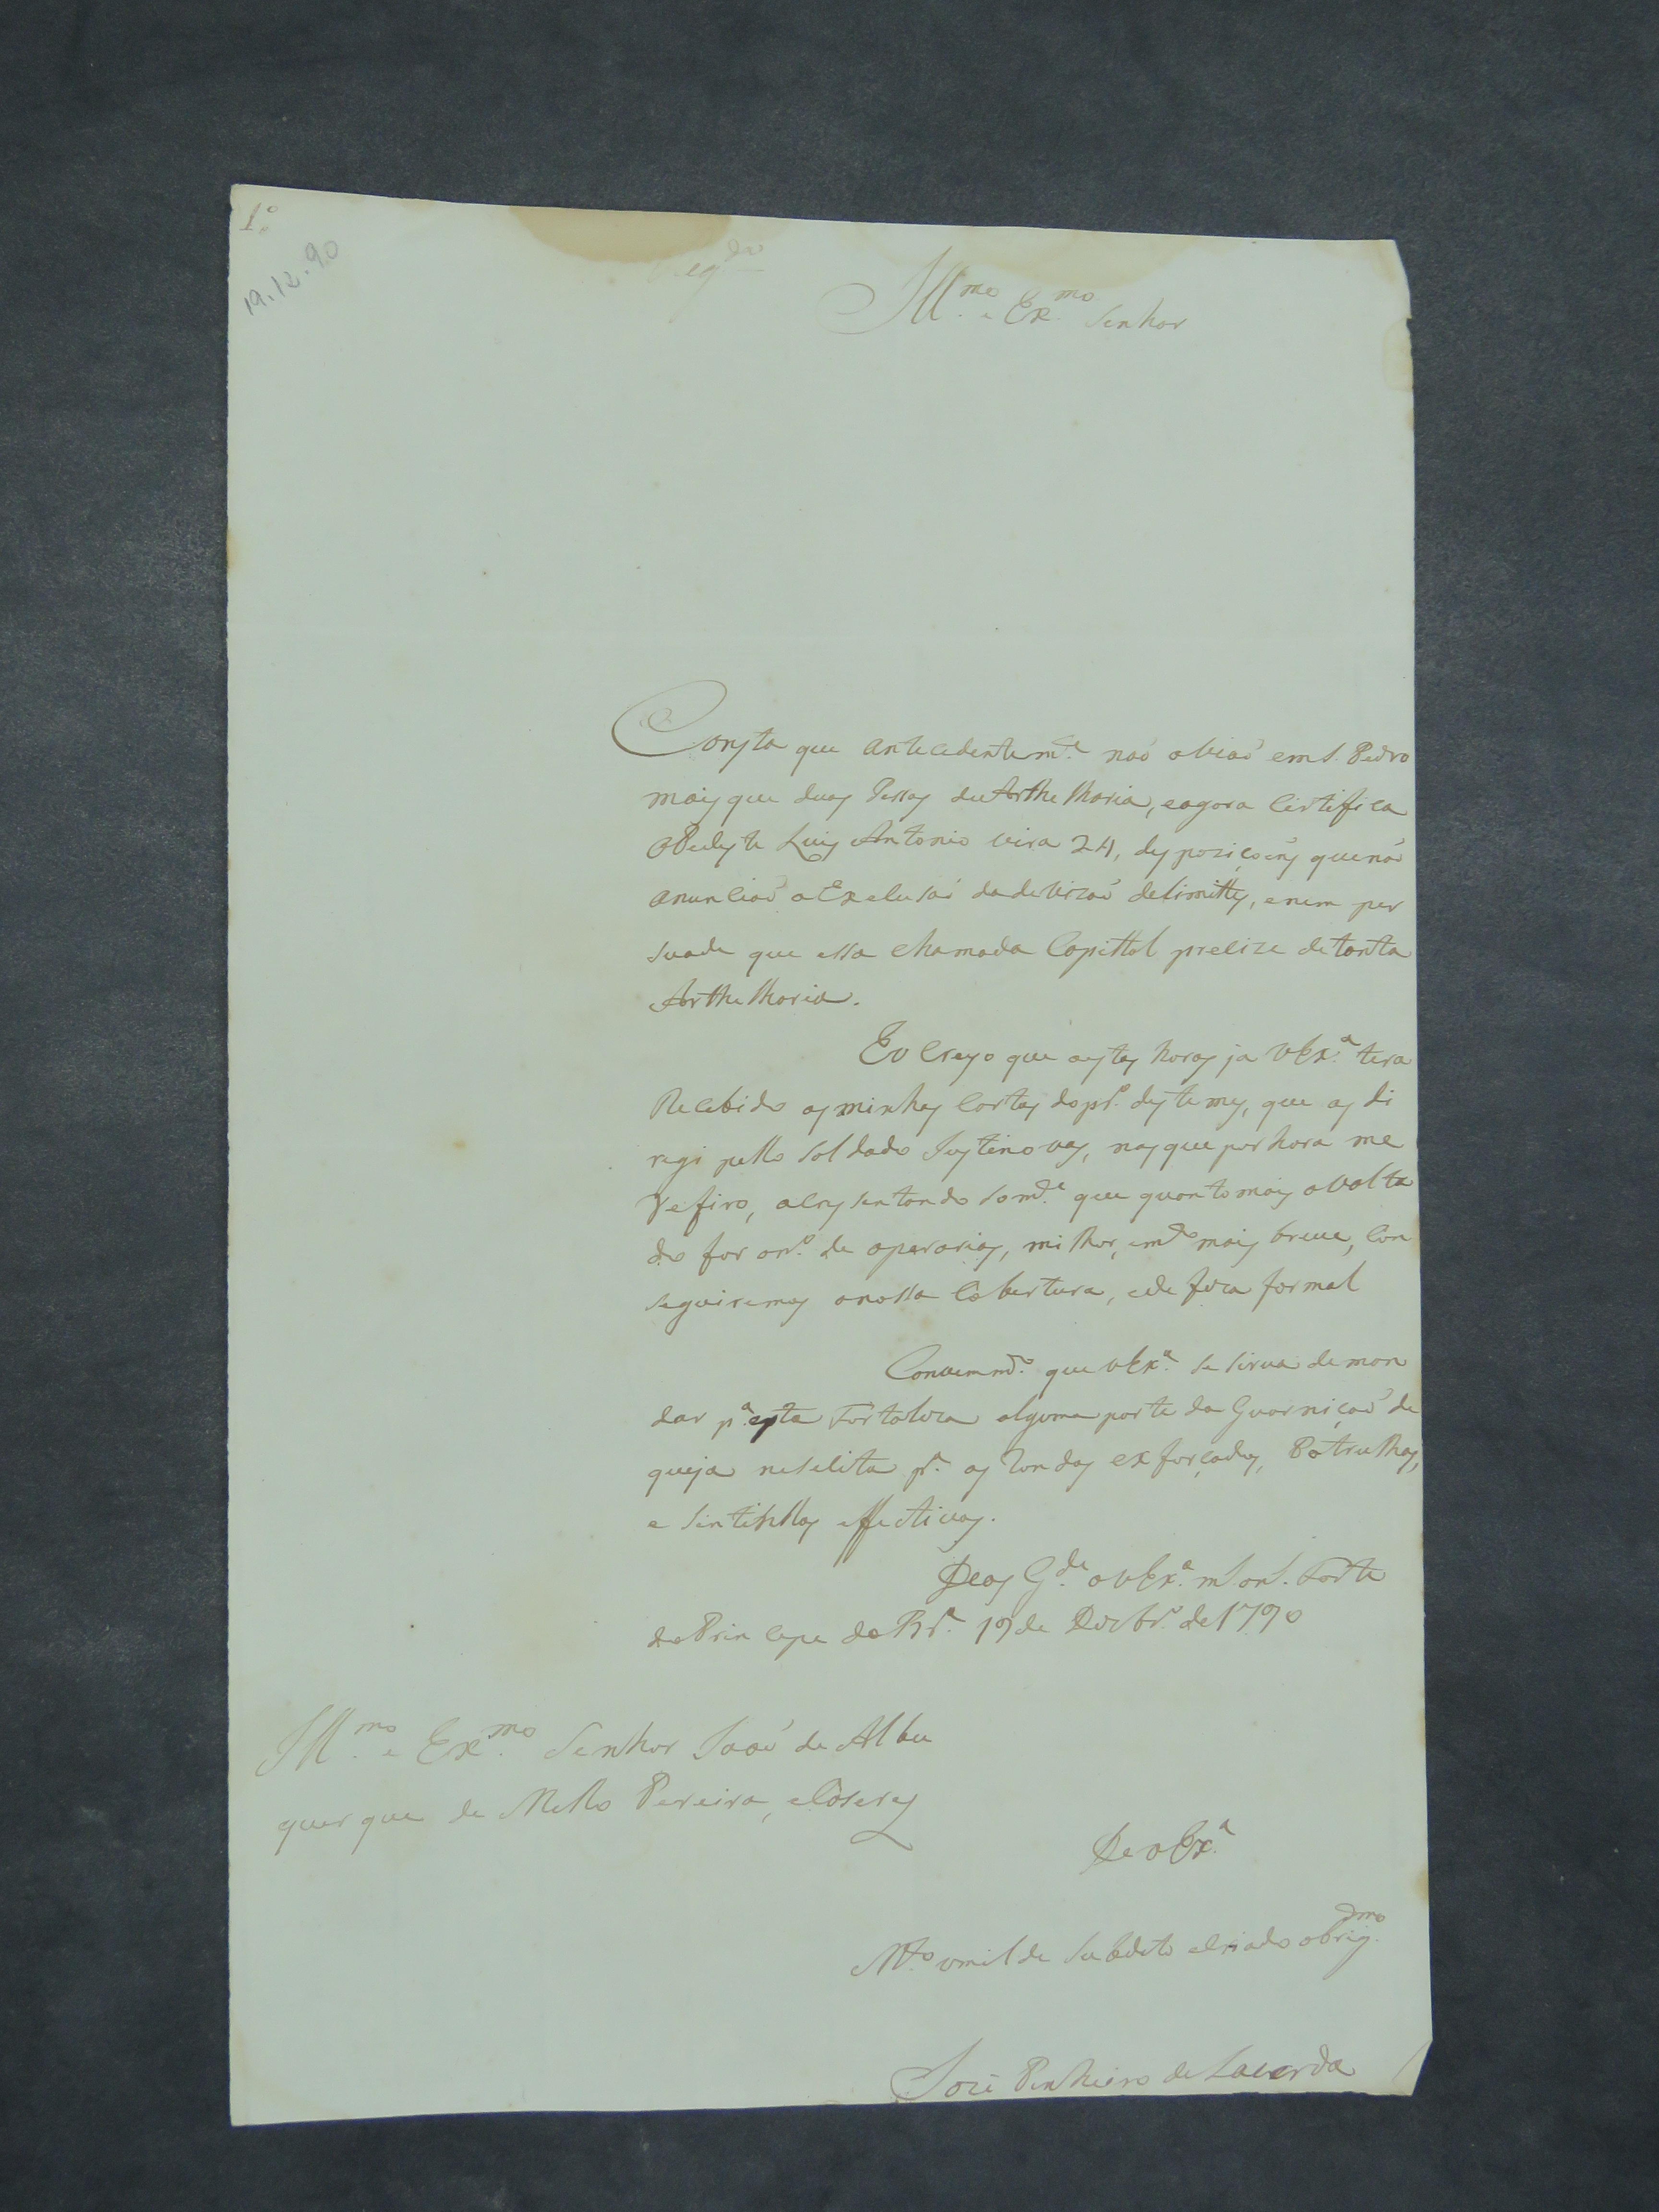 1.º
19.12.90
Ill.mo e Ex.mo Senhor
Consta que antecedentem.e naõ aviaõ em S. Pedro
mais que duas Pessas de Arthelharia, e agora Certifica
o Pedeste Luis Antonio vira 24, dispoziçoens que naõ
anunciaõ a Excluzaõ da devizaõ de limittes, e nem per
suade que essa chamada Capittal precize de tanta
Arthelharia.
Eu Creyo que a estas horas ja V Ex.a tera
Recebido as minhas Cartas do pr.º deste mes, que as di
regi pello Soldado Justino vas, nas que por hora me
refiro, acresentando som.e que quanto mais avulta
do for o n.º de operarios, milhor, e m.to mais breve, Con
seguiremos a nossa Cobertura, e defeza formal
Convem m.to que V Ex.a se sirva de man
dar p.a esta Fortaleza alguma parte da Guarniçaõ de
que ja neselita p.a as Rondas exforçadas, Patrulhas,
e Sintinellas effectivas.
Deos G.de a V Ex.a m.s an.s Forte
do Principe da Br.a 19 de Dezbr.º de 1790
Ill.mo e Ex.mo Senhor Joaõ de Albu
querque de Mello Pereira, e Caseres
De V Ex.a
M.to umilde Subdito e criado obrig.dmo
José Pinheiro de Lacerda